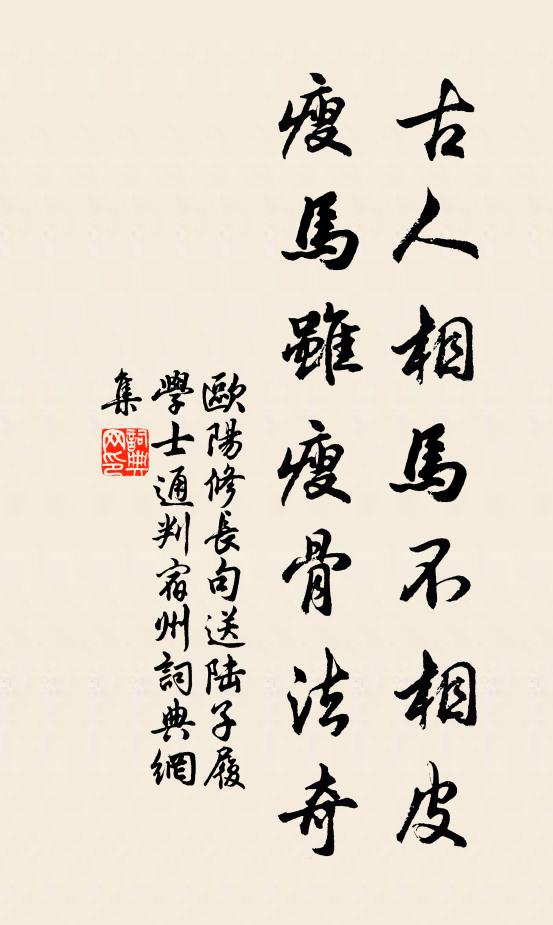 古人相馬不相皮
瘦馬雖瘦骨法奇
歐陽修長句送陆子履
學士通判宿州詞典網
集
詞典
网印